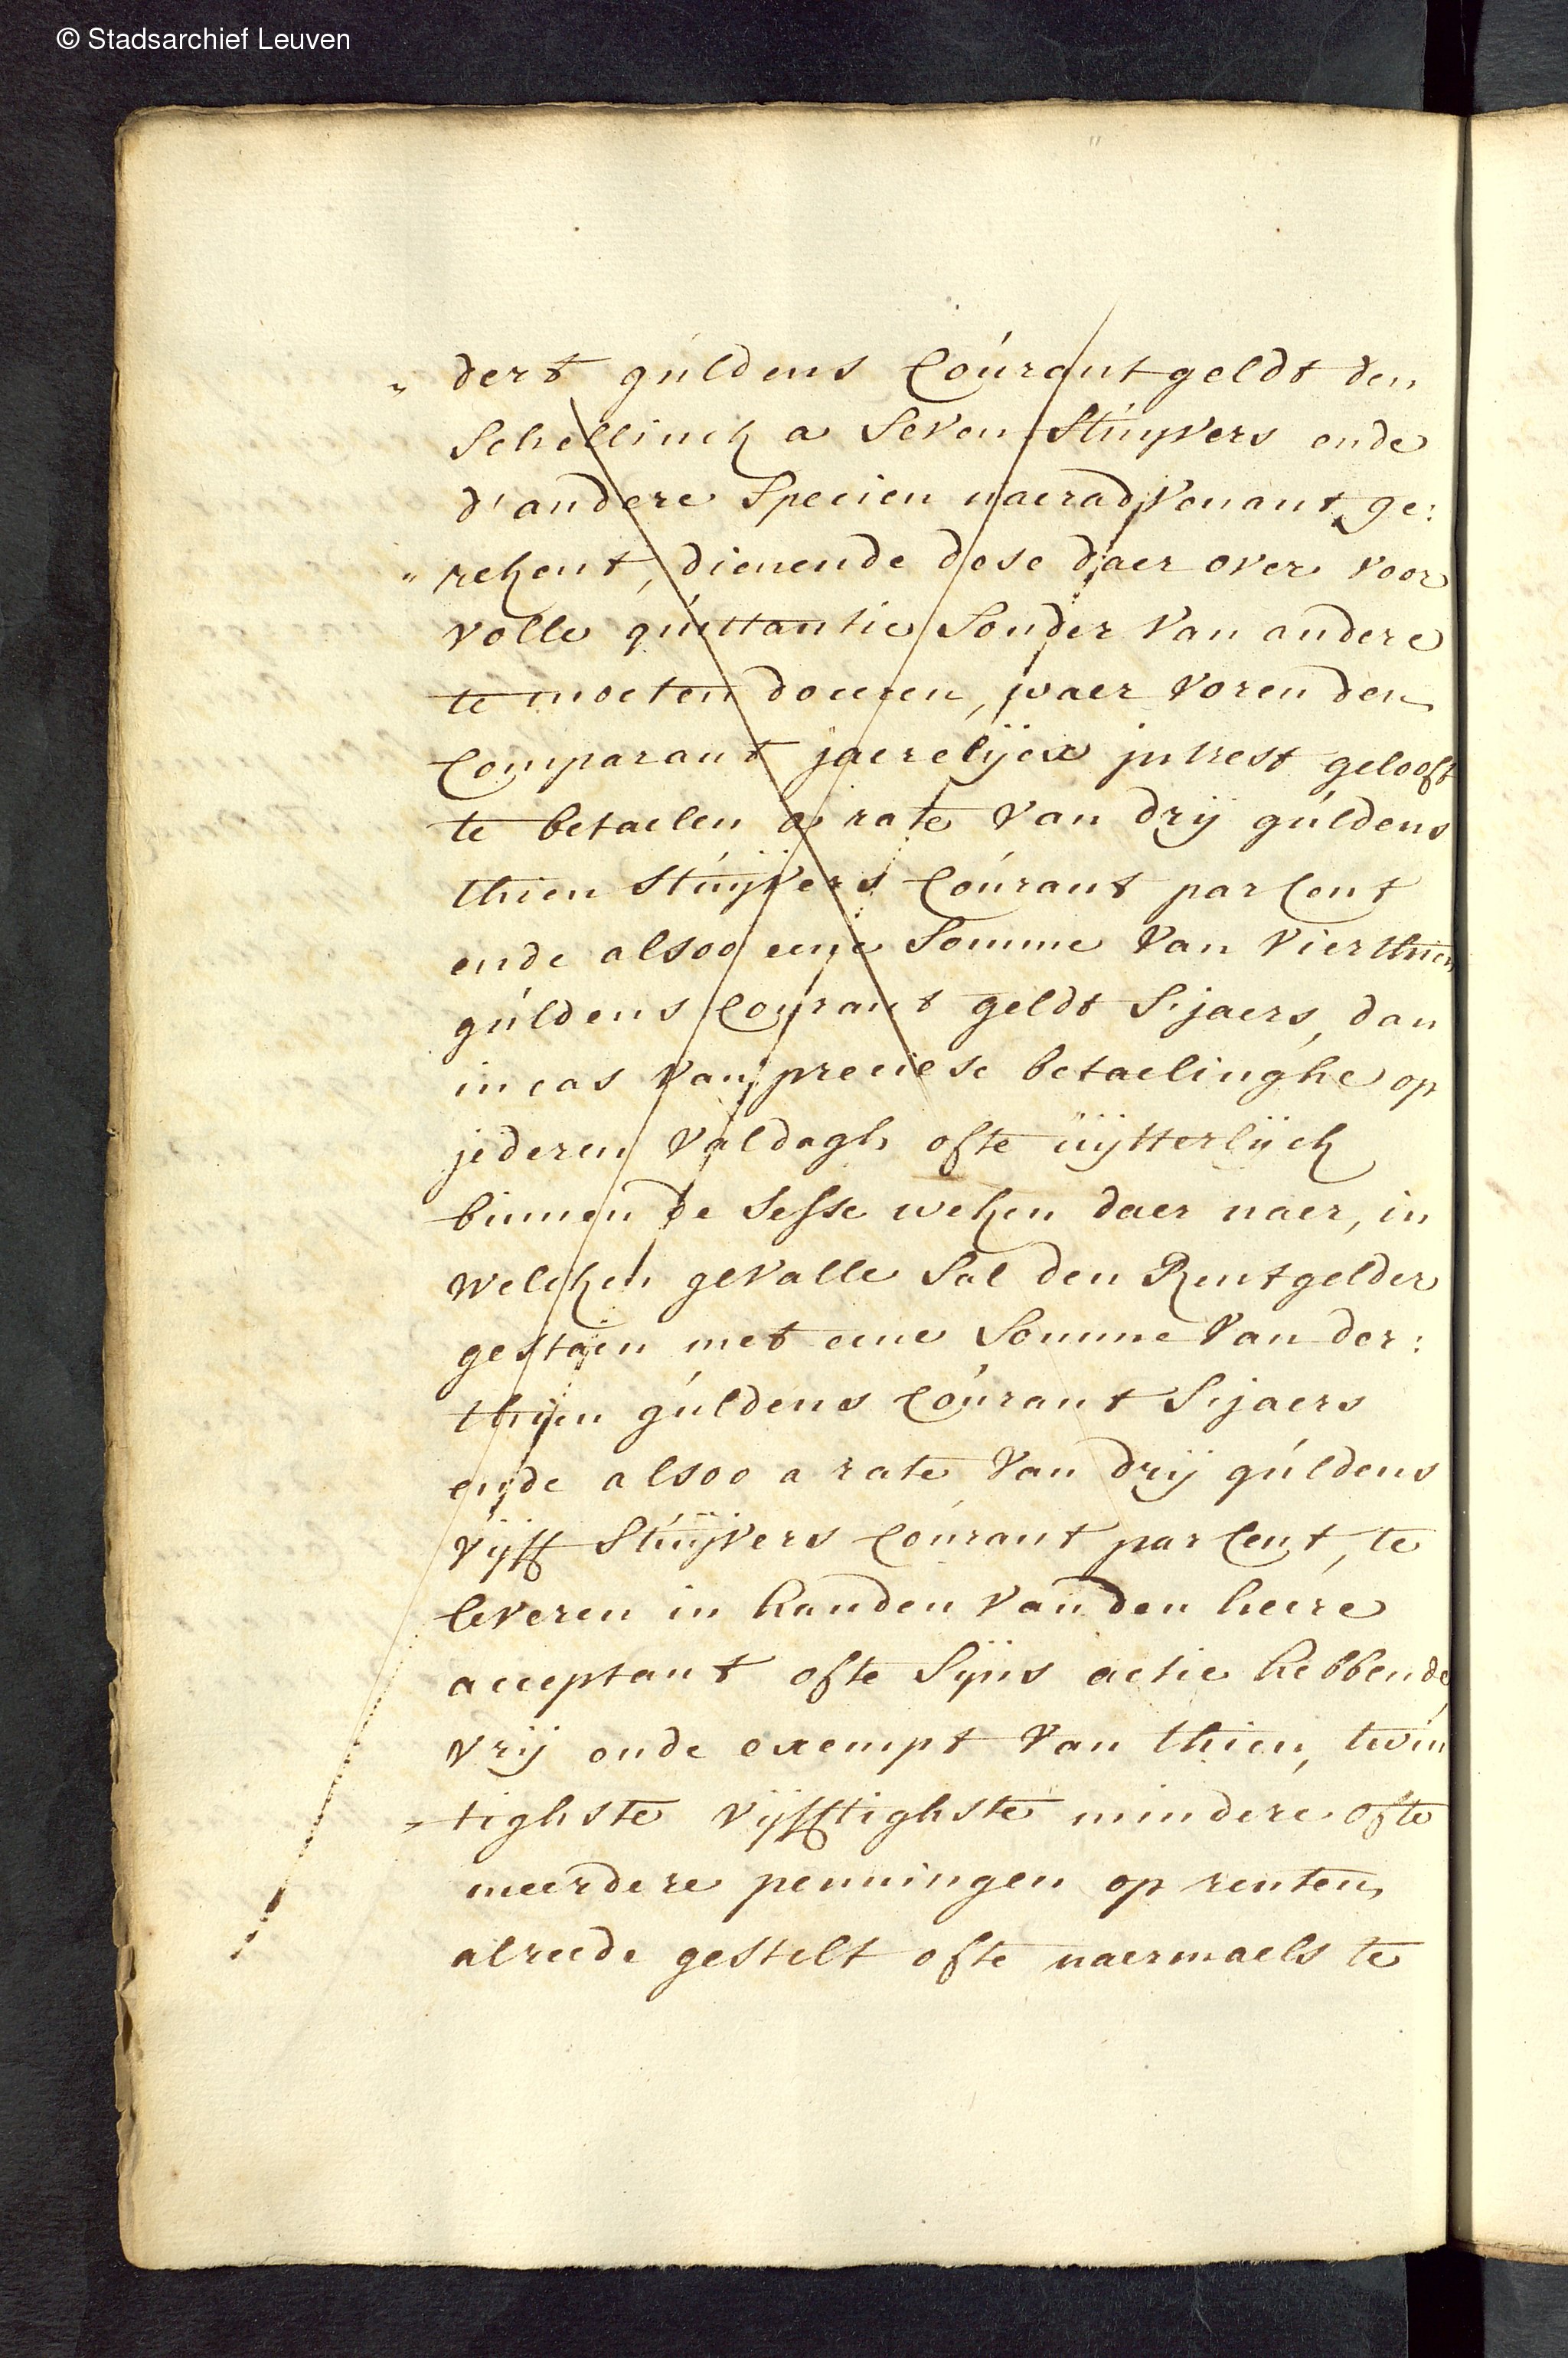 © Stadsarchief Leuven
„ dert gúldens Coúrant geldt den
Schellinck a Seven Stúyvers ende
d'andere Specien naeradvenant ge:
„ rekent, dienende dese daer over voor
volle quittantie Sonder van andere
te moeten doceren, waer voren den
Comparant jaerelijcx intrest gelooft
te betaelen a rate van drij gúldens
thien Stúijvers Coúrant par Cent
ende alsoo eene Somme van vierthien
gúldens Courant geldt S'jaers, dan
in cas van preciese betaelinghe op
jederen valdagh ofte úijtterlijck
binnen de Sesse weken daer naer, in
welcken gevalle Sal den Rentgelder
gestaen met eene Somme van der:
thien gúldens Coúrant S'jaers
ende alsoo a rate van drij gúldens
vijff Stúijvers Coúrant par Cent, te
leveren in handen van den heere
acceptant ofte Sijns actie hebbende,
vrij ende exempt van thien, twin
„ tighste vijfftighste mindere ofte
meerdere penningen op renten
alreede gestelt ofte naermaels te